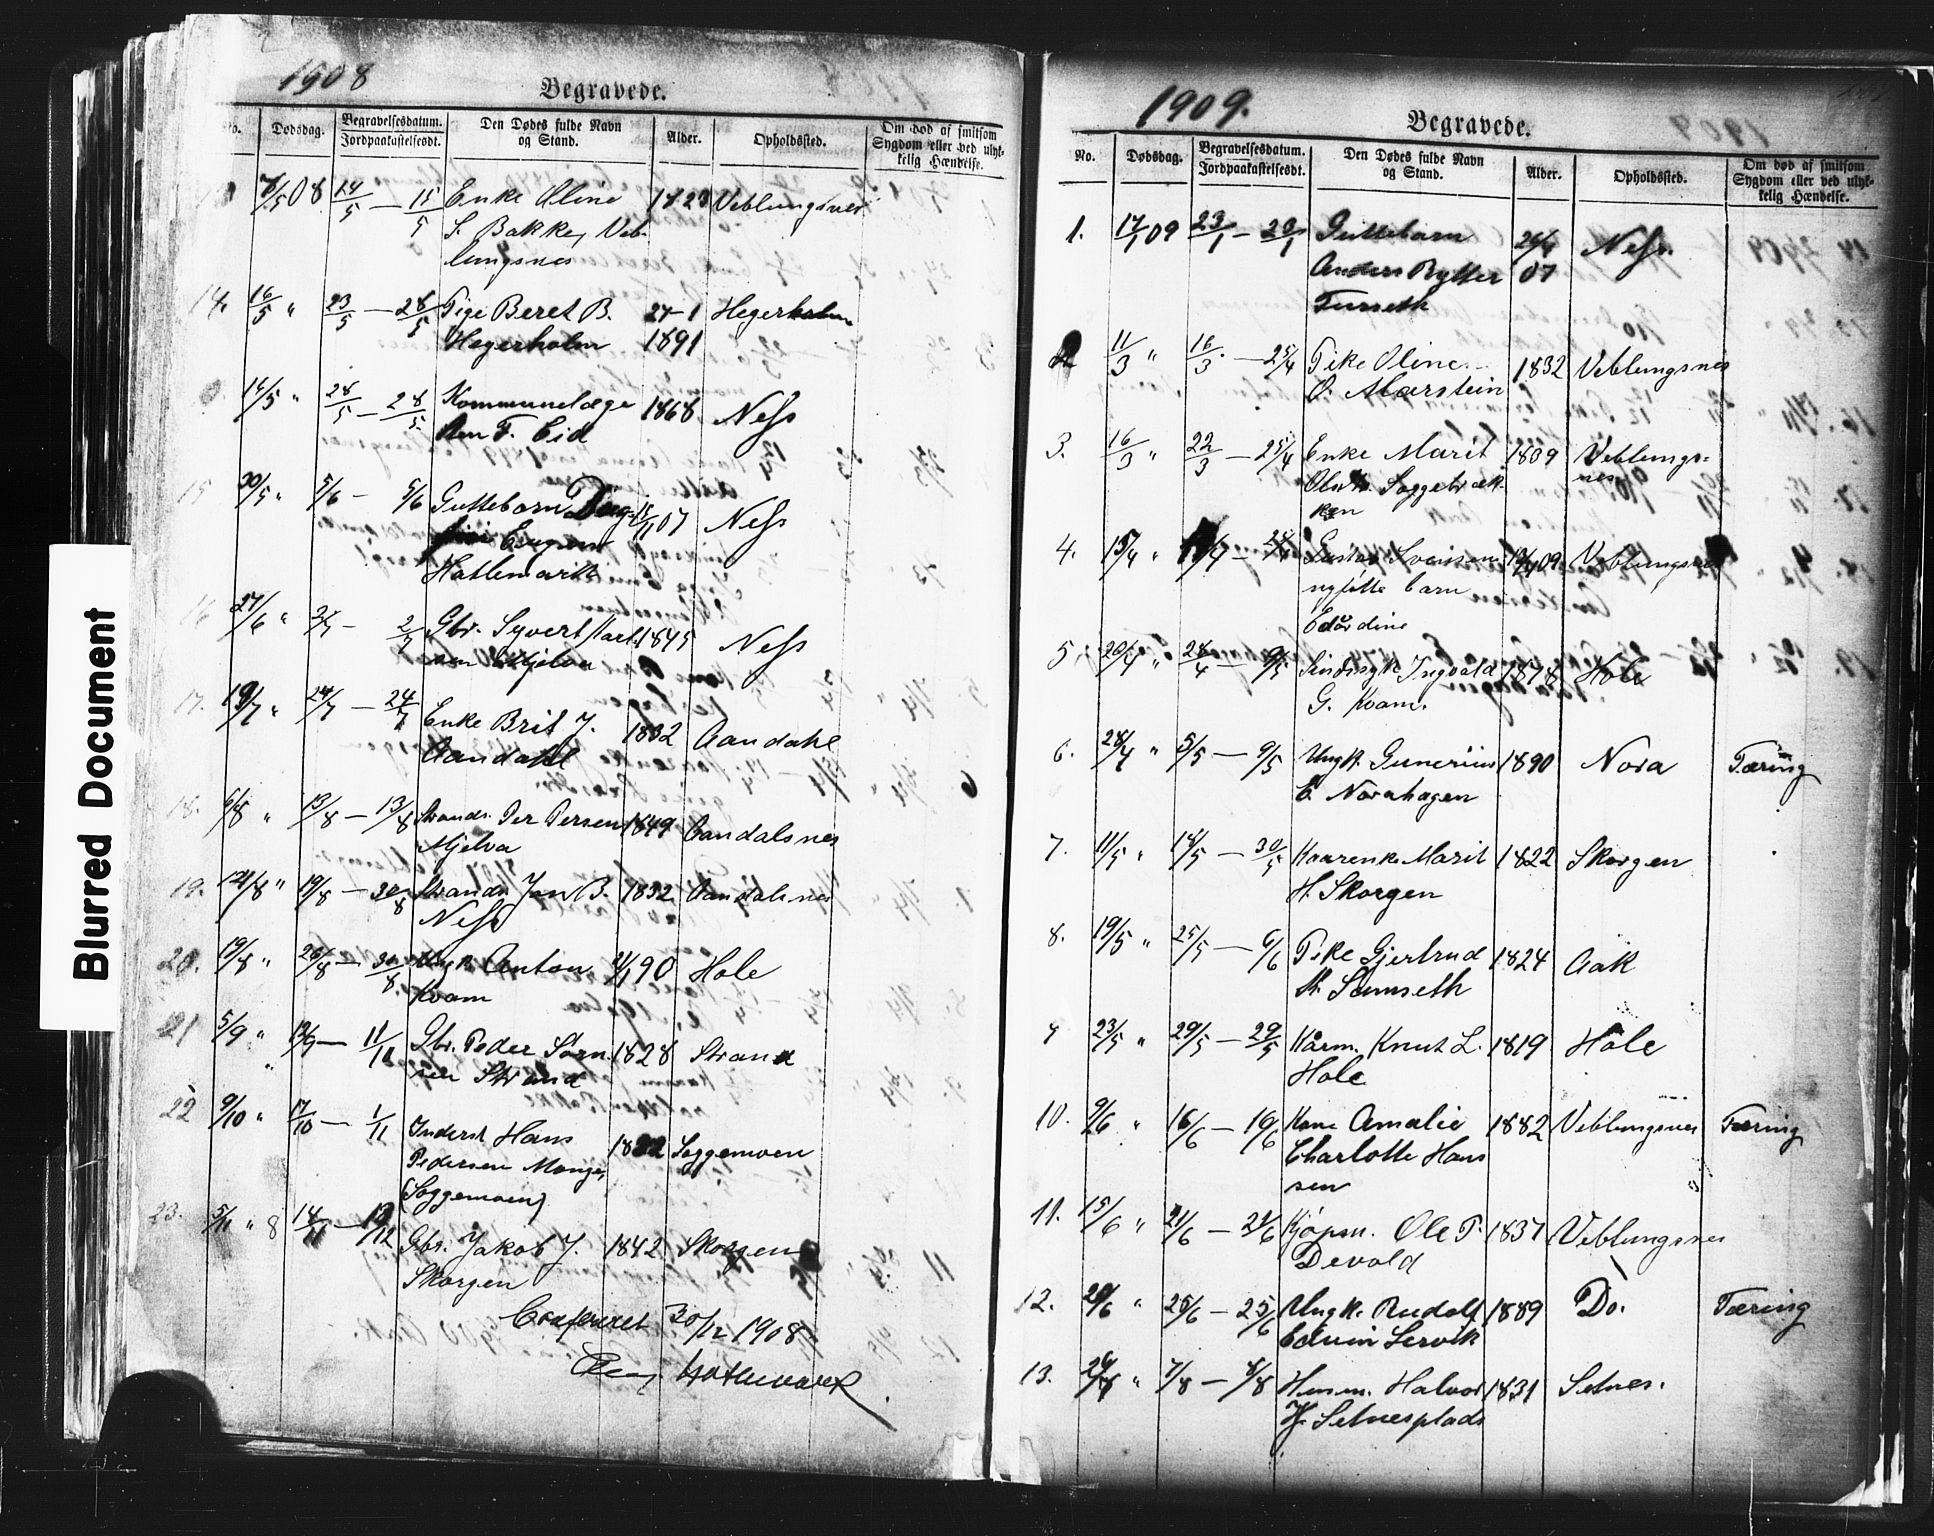 Blurred Document
1908
Begravede.
No. Dødsdag. Begravelsesdatum. Jordpaakastelsesdt. Den Dødes fulde Navn og Stand. Alder. Opholdssted. Om død af smitsom Sygdom eller ved ulykkelig Hændelse.
7/5 08 14/5 — 15/5 Enke Oline 1823 Veblungsnes
S. Bakke, Veb-
lungsnes
14. 16/5 " 23/5 — 28/5 Pige Beret B. 24-1 Hegerholm
Hegerholm 1891
14/5 " 28/5 — 28/5 Kommunelæge 1868 Ness
F. Eid
15 30/5 " 5/6 — 5/6 Guttebarn 07 Ness
Hatlemark
16 27/6 " — 2/7 Gbr. Syvert 1845 Ness
sen Mjelva
17. 19/7 " 24/7 — 24/7 Enke Brit J. 1832 Aandahl
Aandahl
18. 6/8 " 13/8 — 13/8 Strands. Per Persen 1849 Aandalsnes
Mjelva
19. 12/8 " 19/8 — 30/8 Strands. Jon B. 1832 Aandalsnes
Ness
20. 19/8 " 26/8 — 30/8 Ungk. Anton 90 Hole
Kvam
21 5/9 " 12/9 — Gbr. Peder Sørn 1828 Strand
sen Strand
22 9/10 " 17/10 — 1/11 Inderst Hans Soggemoen
Pedersen Monge,
(Soggemoen)
23. 5/11 " 8 14/11 — Gbr. Jakob J. 1842 Skorgen
Skorgen
Confereret 30/12 1908
Hatlemark
1909.
Begravede.
No. Dødsdag. Begravelsesdatum. Jordpaakastelsesdt. Den Dødes fulde Navn og Stand. Alder. Opholdssted. Om død af smitsom Sygdom eller ved ulykkelig Hændelse.
1. 17/1 09 23/1 — Guttebarn Ness.
Anders Rytter 07
Furseth
2 11/3 " 16/3 — 25/4 Pike Oline 1832 Veblungsnes
O. Marstein
3. 16/3 " 22/3 — 25/4 Enke Marit 1809 Veblungs-
Soggebræk- nes
ken
4. 15/4 " Gustav 09 Veblungsnes
nyfødte barn
Edvardine
5 20/4 " 28/4 — 9/5 Sindssyk Ingvald 1878 Hole
G. Kvam.
6. 28/4 " 5/5 — 9/5 Ungk. Gunerius 1890 Nora Tæring
E. Norahagen
7. 11/5 " 18/5 — 30/5 Kaarenke Marit 1822 Skorgen
H. Skorgen
8. 19/5 " 25/5 — 6/6 Pike Gjertrud 1824 Aak
Sumseth
9 23/5 " 29/5 — 29/5 Kårm. Knut L. 1819 Hole
Hole
10. 9/6 " 16/6 — 16/6 Kone Amalie 1882 Veblungsnes Tæring
Charlotte Han
sen
11. 15/6 " 21/6 — 21/6 Kjøpm. Ole P. 1837 Veblungsnes
Devold
12. 20/6 " 25/6 — 25/6 Ungk. Rudolf 1889 Do. Tæring
Edvin Lervik
13. " 7/8 — 8/8 Husm. Halvor 1831 Setnes.
Setnesplads